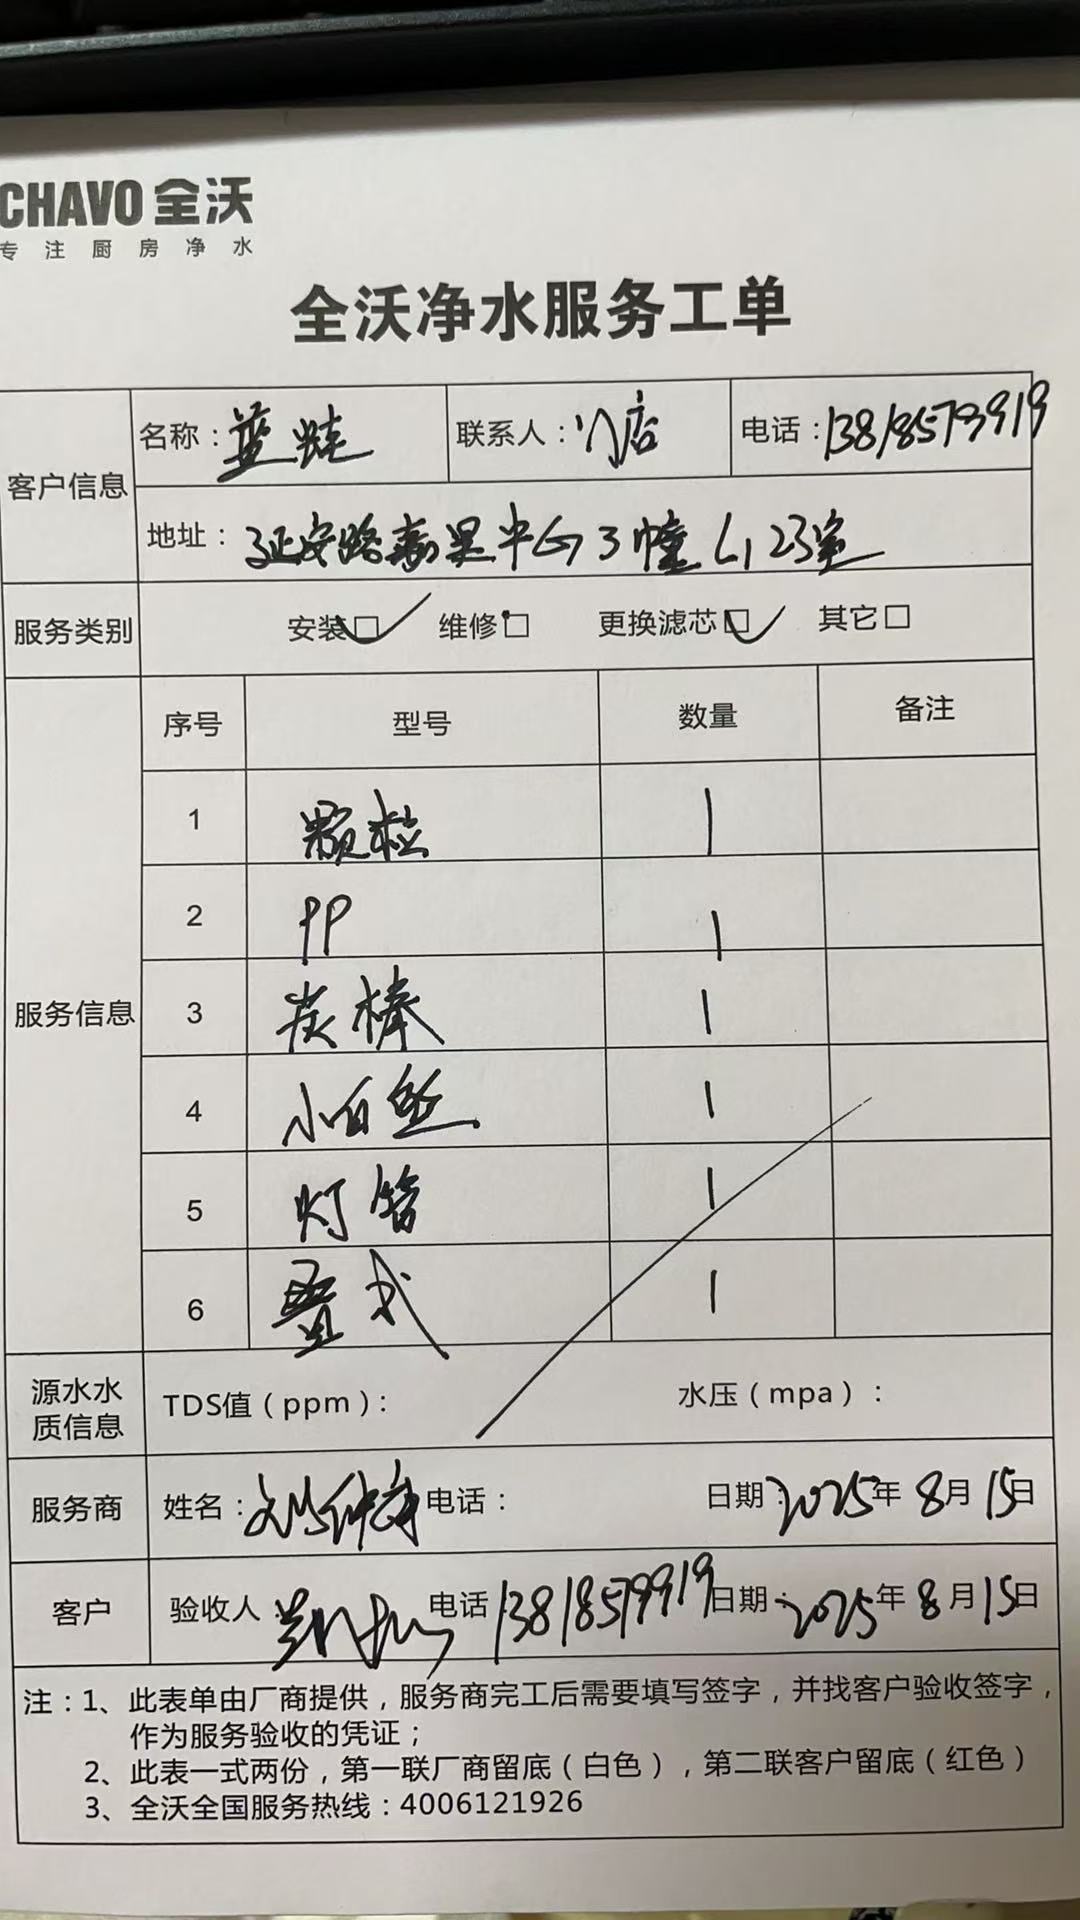 CHAVO 全沃
专注厨房净水
全沃净水服务工单
客户信息 名称：蓝蛙 联系人：门店 电话：13818579919
地址：延安路嘉里中心3幢L123室
服务类别 安装☑ 维修□ 更换滤芯☑ 其它□
服务信息 序号 型号 数量 备注
1 颗粒 1
2 PP 1
3 炭棒 1
4 小白 1
5 灯管 1
6 1
源水水质信息 TDS值（ppm）： 水压（mpa）：
服务商 姓名： 电话： 日期：2025年8月15日
客户 验收人： 电话 13818579919 日期：2025年8月15日
注：1、此表单由厂商提供，服务商完工后需要填写签字，并找客户验收签字，
作为服务验收的凭证；
2、此表一式两份，第一联厂商留底（白色），第二联客户留底（红色）
3、全沃全国服务热线：4006121926